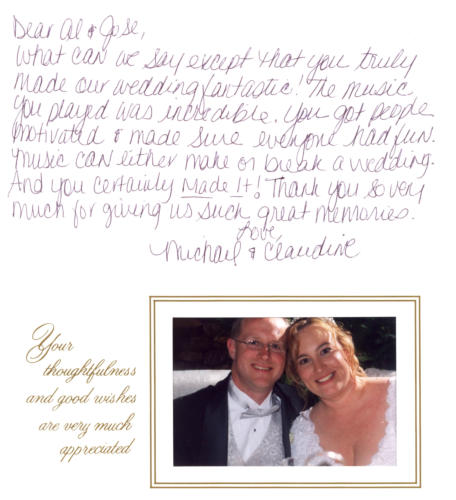 Dear Al & Jose,
What can we say except that you truly
made our wedding fantastic! The music
you played was incredible. You got people
motivated & made sure everyone had fun.
Music can either make or break a wedding.
And you certainly Made It! Thank you so very
much for giving us such great memories.
Love,
Michael & Claudine
Your
thoughtfulness
and good wishes
are very much
appreciated